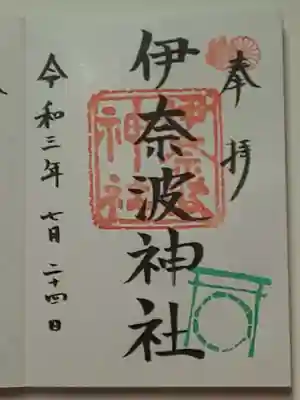 奉拝
伊奈波神社
伊奈波
神社
令和三年 七月 二十四日